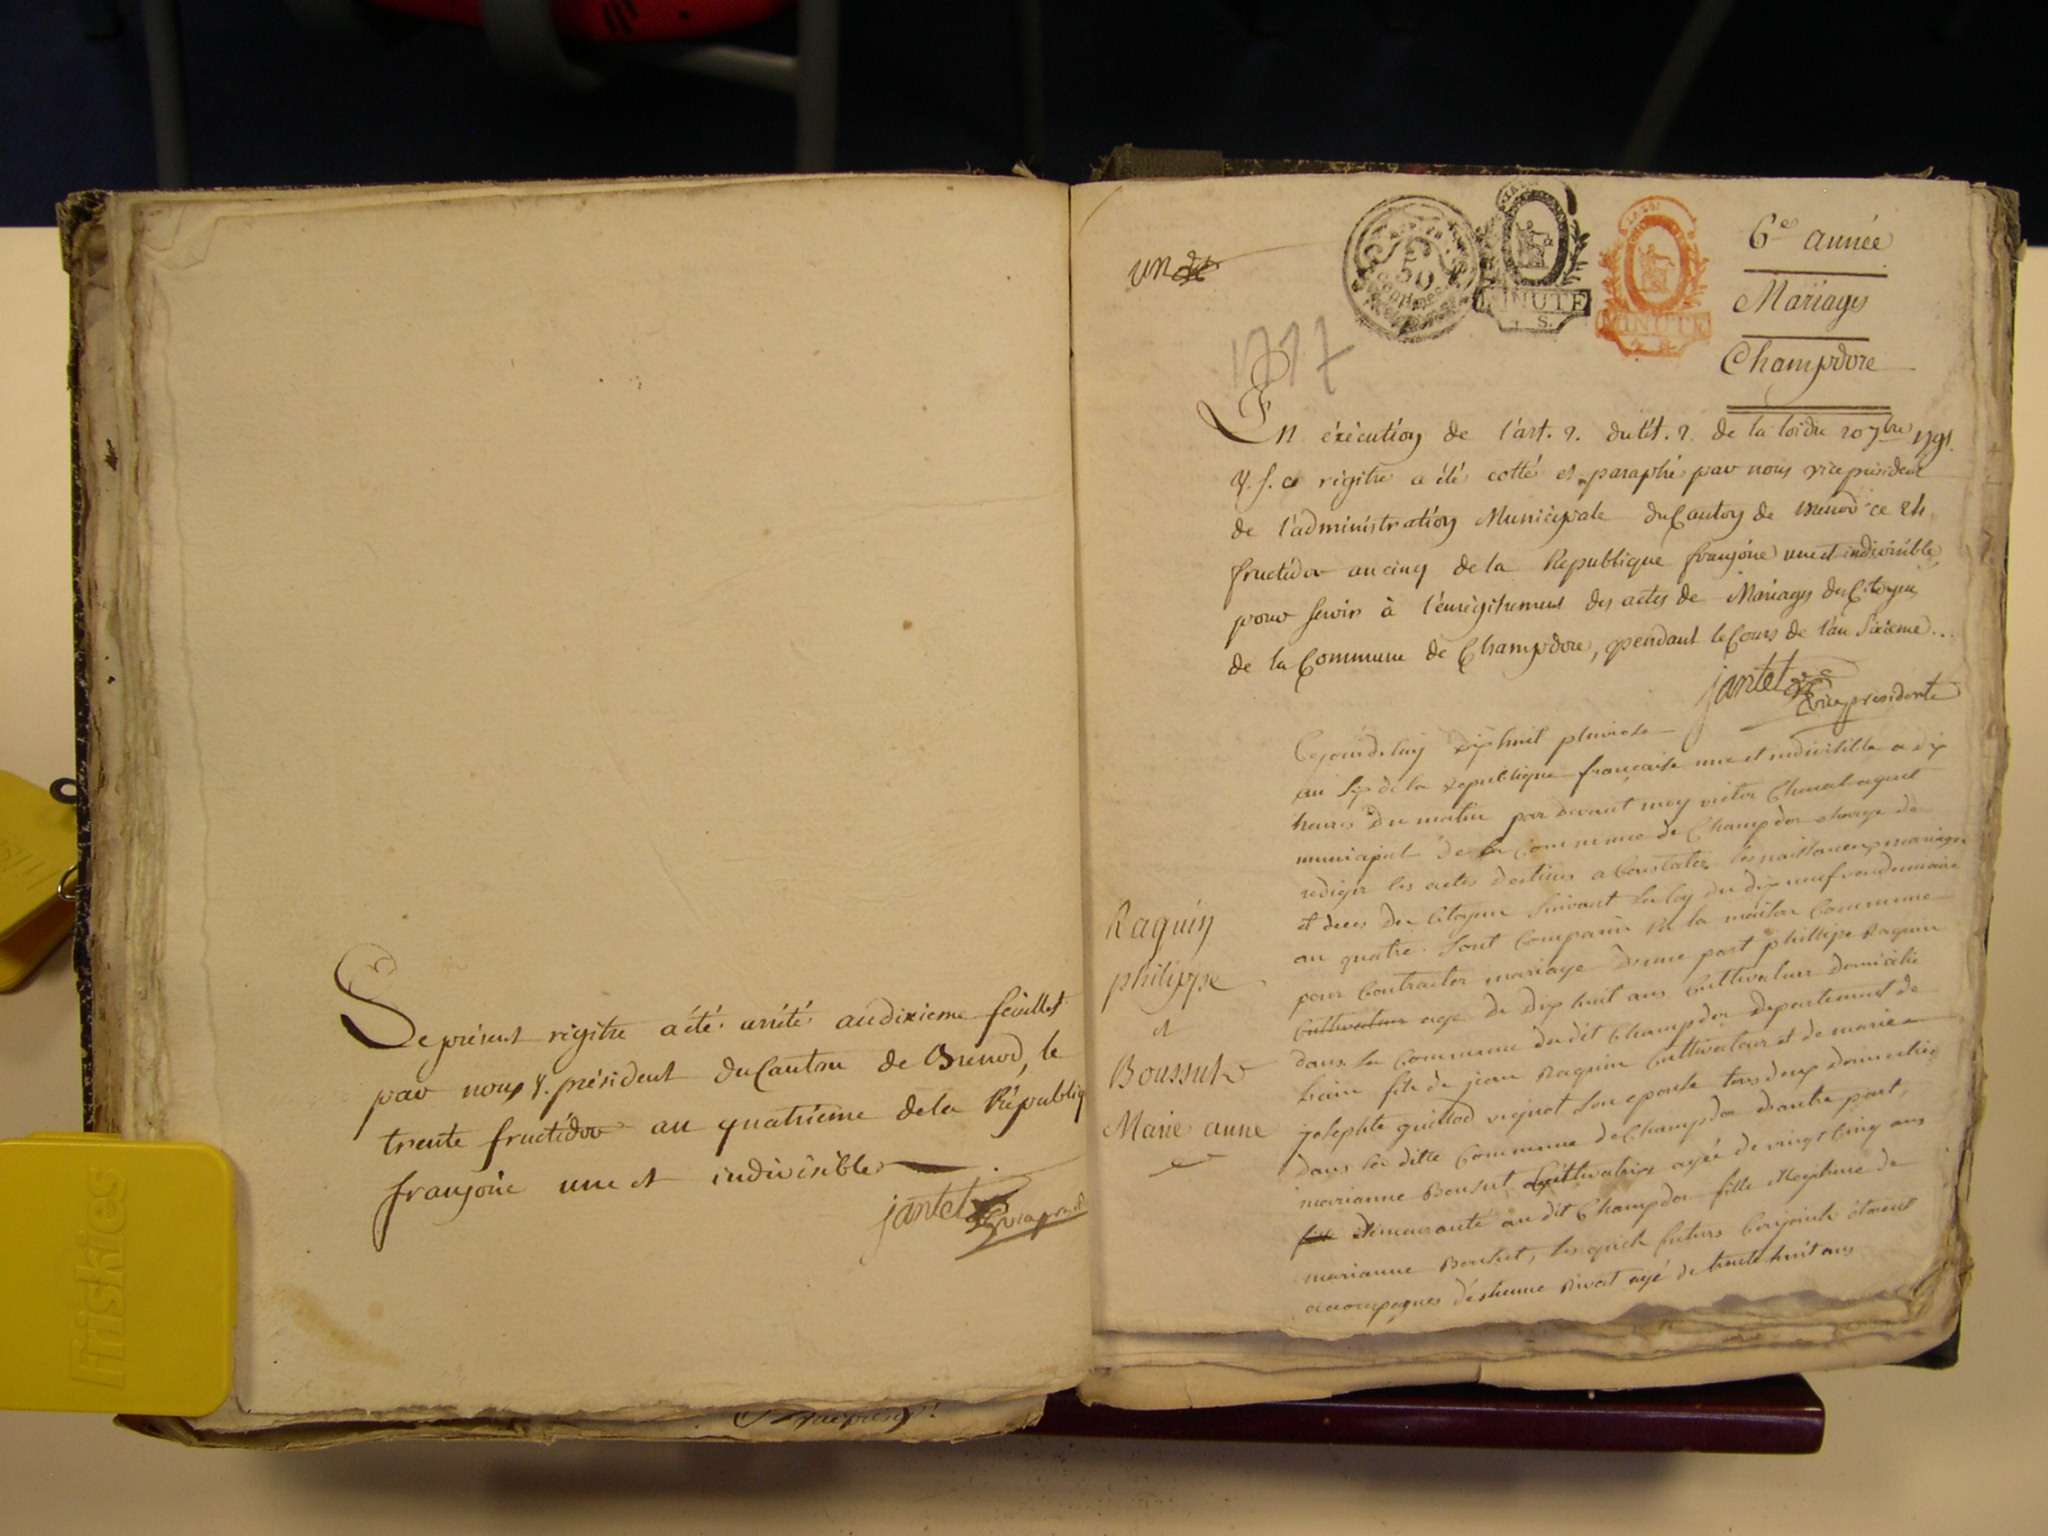 Le présent régitre a été arrêté au dixieme feuillet
par nous v. président du Canton de Brenod, le
trente fructidor an quatrieme de la Républiq
françoise une et indivisible
jantet
Friskies
un
50
MINUTE
S.
MINUTE
6e année
Mariages
Champdore
En éxécution de l'art. 2. du tit. 2. de la loi du 20 7bre 1791.
régitre a été cotté et paraphé par nous vice président
de l'administration Municipale du Canton de Brenod ce 24
fructidor an cinq de la Republique françoise une et indivisible,
pour servir à l'enrégitrement des actes de Mariages des Citoyens
de la Commune de Champdore, pendant le Cours de l'an Sixieme...
jantet vice presidente
Raguin
philippe
et
Boussut
Marie anne
Cejourdhuy dix huit pluviose
an six de la republique francaise une et indivisible a dix
heures du matin par devant moy victor Chenal agent
municipal de la commune de Champdor charge de
rediger les actes destines a Constater les naissances mariages
et deces des Citoyens suivant la loy du dix neuf vendemiaire
an quatre. sont Comparus en la maison Commune
pour Contracter mariage d'une part phillipe Raguin
Cultivateur age de dix huit ans Cultivateur domicilie
dans la Commune du dit Champdor departement de
Lain fils de jean Raguin Cultivateur et de marie
josephte guillod vignot son epouse tous deux domicilies
dans la ditte Commune de Champdor d'autre part,
marianne Bousut Cultivatrice agée de vingt Cinq ans
demeurante au dit Champdor fille legitime de
marianne Bousut, lesquels futurs Conjoints étoient
accompagnes d'éstienne Rivat agé de trente huit ans